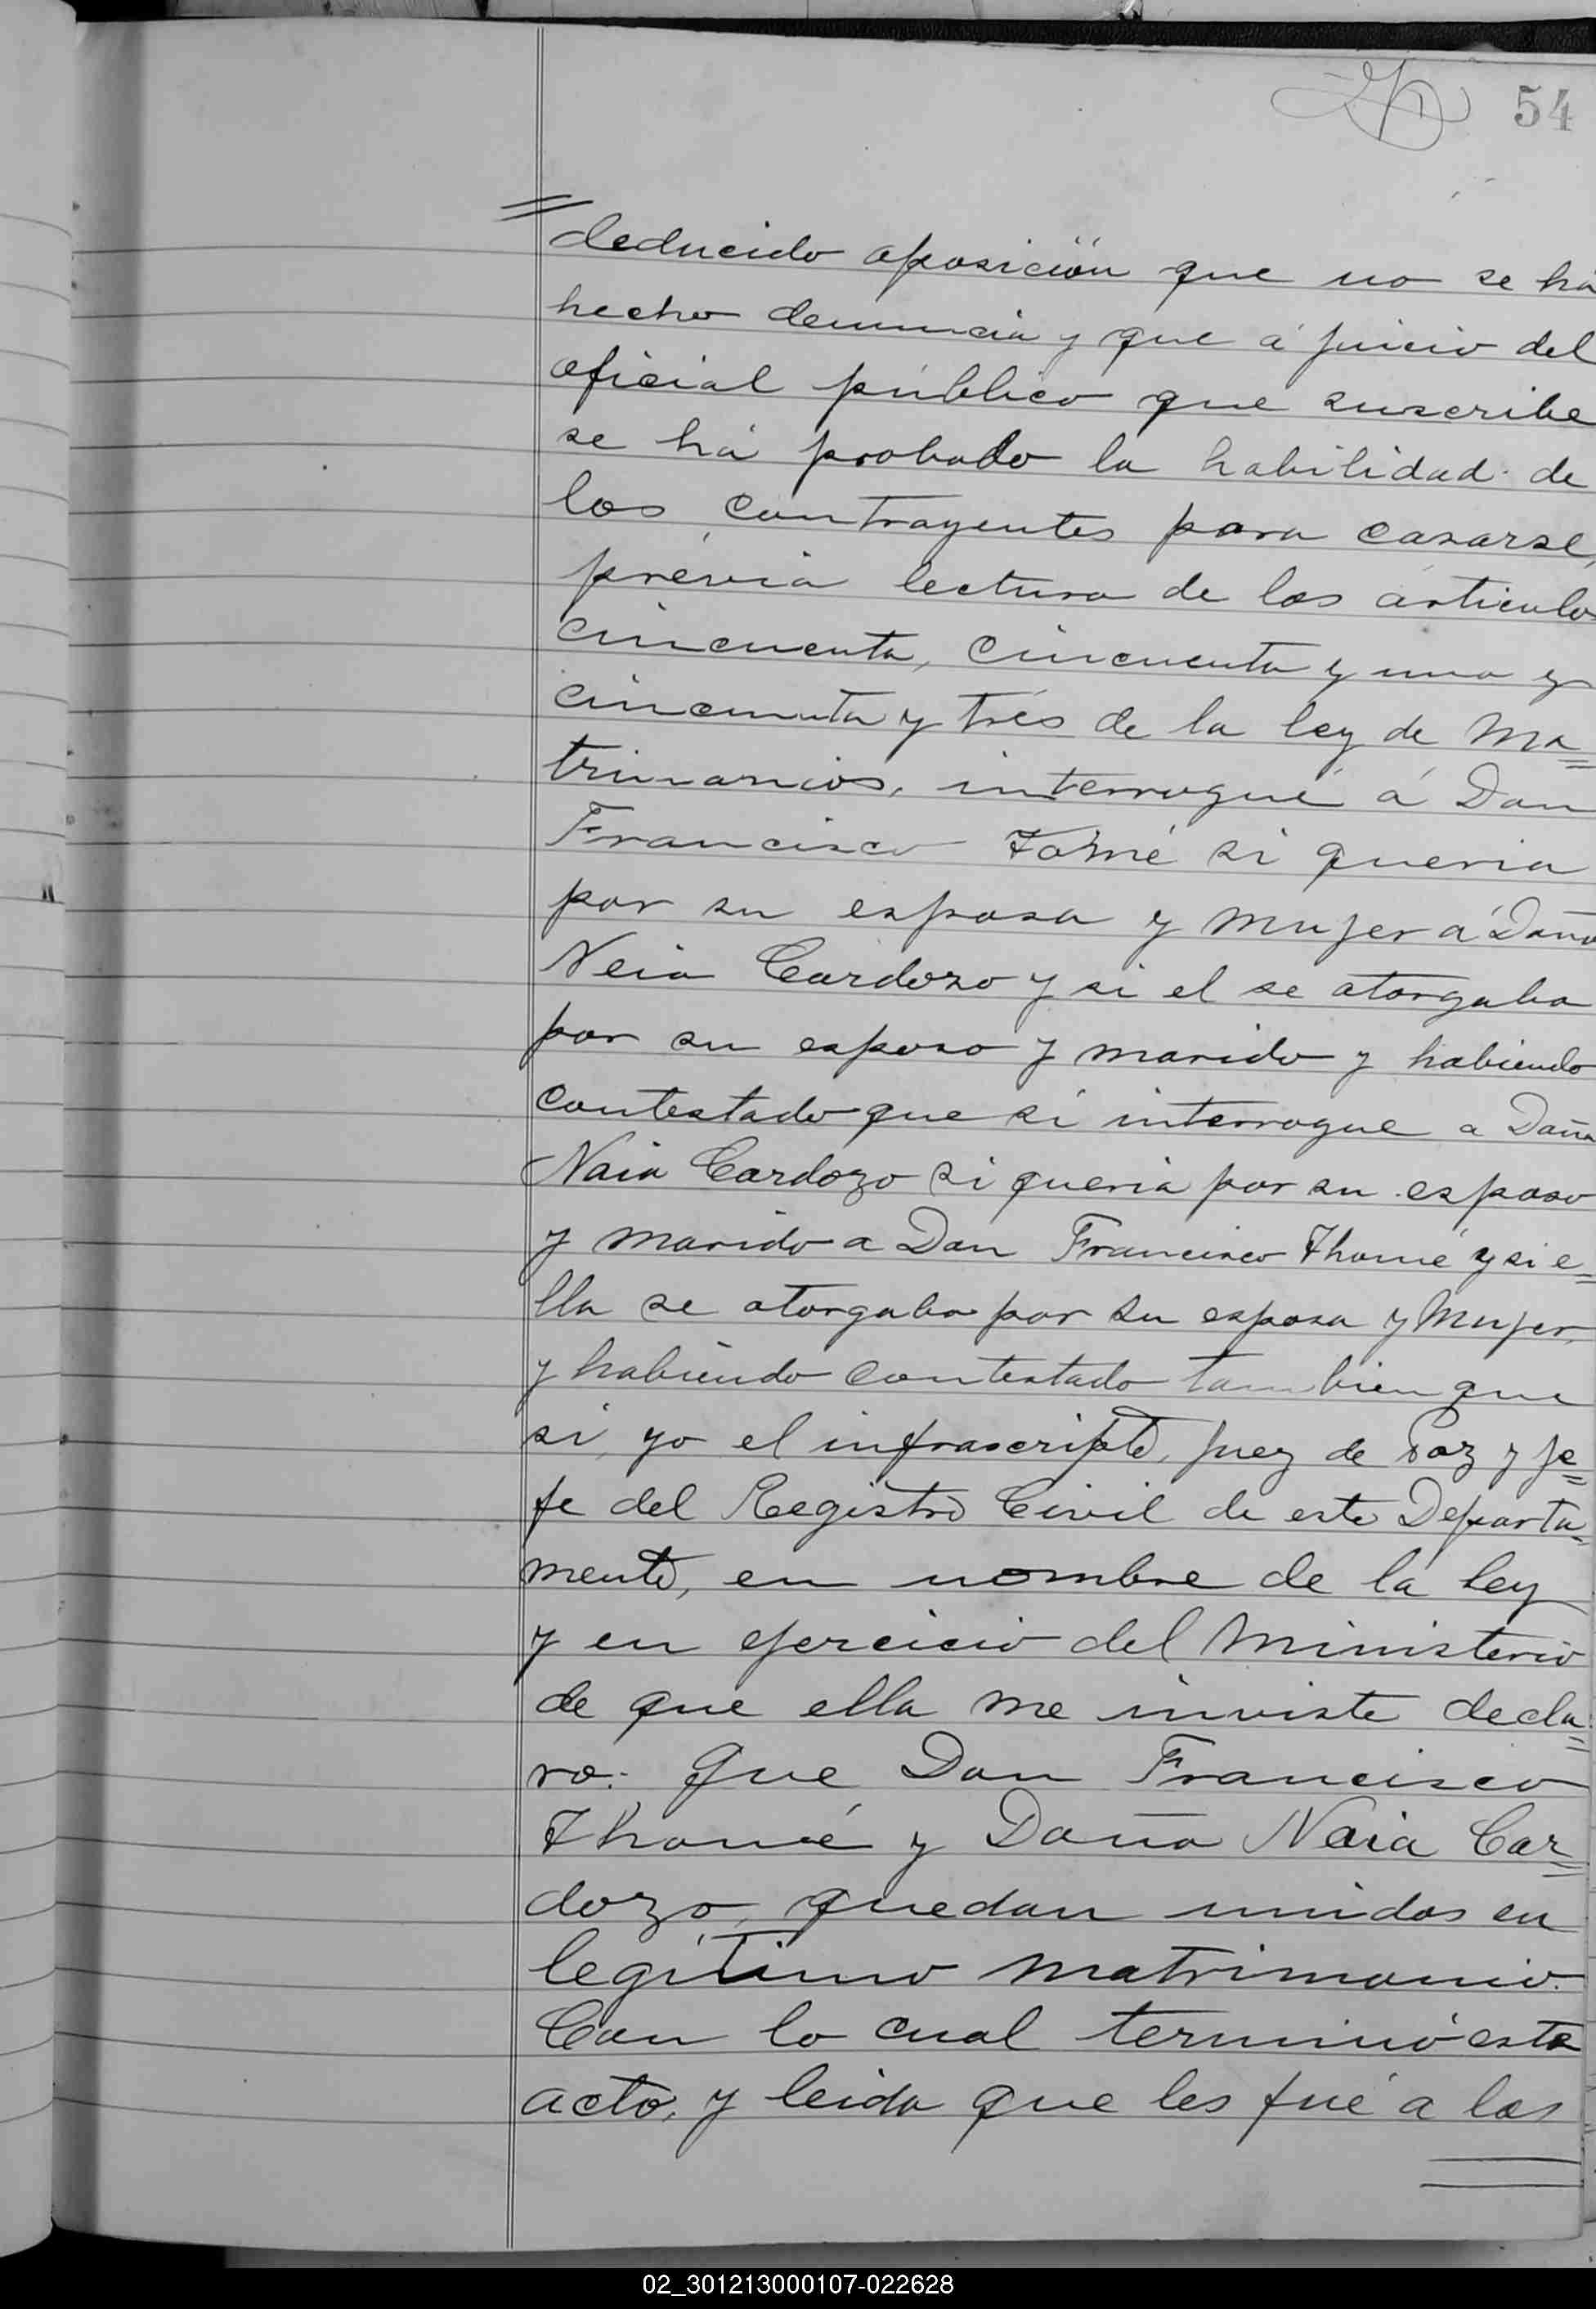 54
= deducido oposición que no se há
hecho denuncia y que á juicio del
oficial público que suscribe
se há probado la habilidad de
los contrayentes para casarse,
prévia lectura de los articulos
cincuenta, cincuenta y uno y
cincuenta y trés de la ley de Ma=
trimonios, interrogué á Don
Francisco Tomé si queria
por su esposa y mujer á Doña
Neia Cardozo y si el se otorgaba
por su esposo y marido y habiendo
contestado que si interrogue a Doña
Naia Cardozo si queria por su esposo
y marido a Don Francisco Thomé y si e=
lla se otorgaba por su esposa y Mujer,
y habiendo contestado tambien que
si, yo el infrascripto, Juez de Paz y je=
fe del Registro Civil de este Departa=
mento, en nombre de la ley
y en ejercicio del Ministerio
de que ella me inviste decla=
ro: que Don Francisco
Thomé y Doña Naia Car=
dozo, quedan unidos en
legítimo matrimonio.
Con lo cual terminó este
acto, y leida que les fué a los
02_301213000107-022628